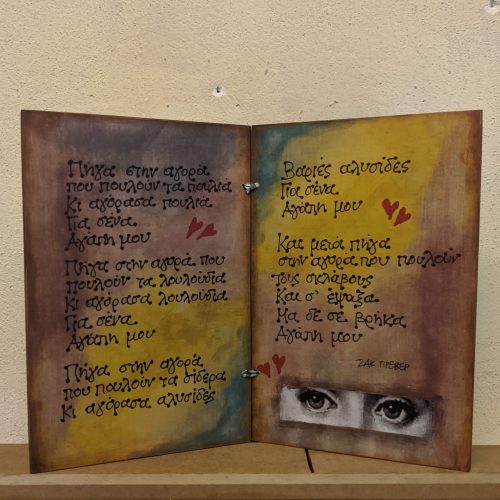 Πήγα στην αγορά
που πουλούν τα πουλιά
Κι αγόρασα πουλιά
Για σένα
Αγάπη μου
Πήγα στην αγορά που
πουλούν τα λουλούδια
Κι αγόρασα λουλούδια
Για σένα
Αγάπη μου
Πήγα στην αγορά
που πουλούν τα σίδερα
Κι αγόρασα αλυσίδες
Βαριές αλυσίδες
Για σένα
Αγάπη μου
Και μετά πήγα
στην αγορά που πουλούν
τους σκλάβους
Και σ' έψαξα
Μα δε σε βρήκα
Αγάπη μου
ΖΑΚ ΠΡΕΒΕΡ